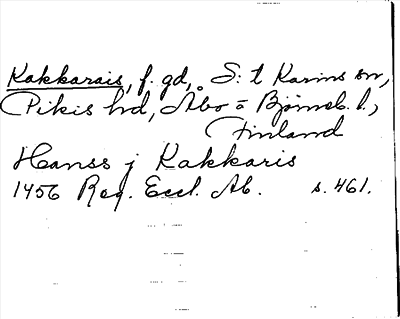 Kakkarais, f. gd, S:t Karins sn,
Pikis hd, Åbo o Björneb. l.,
Finland
Hanss j Kakkaris
1456 Reg. Eccl. Ab. s. 461.